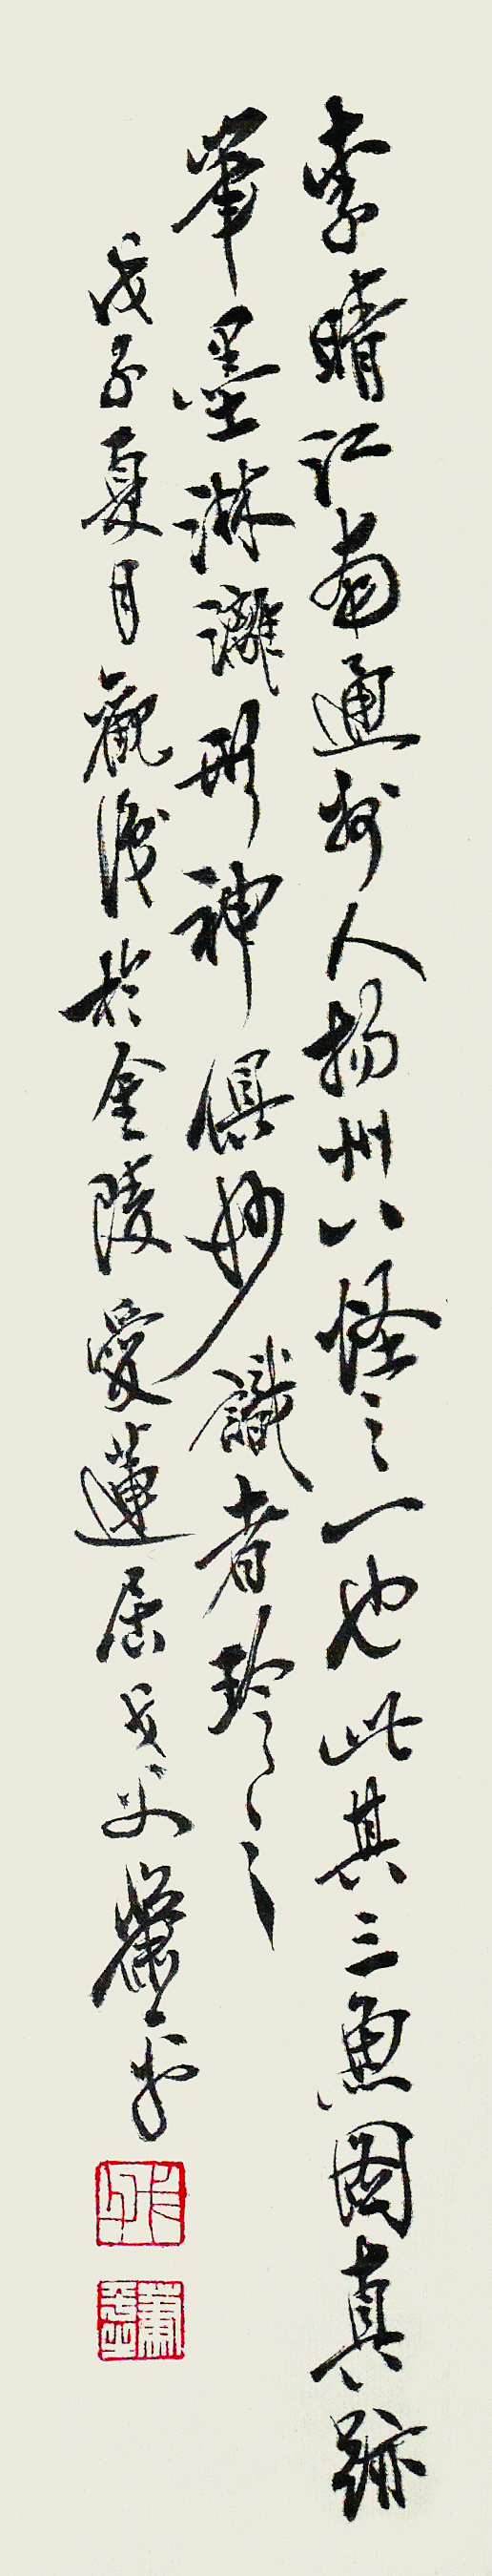 李晴江南通州人揚州八怪之一也此其三魚图真跡
筆墨淋漓形神俱妙識者珍之
戊子夏月觀後於金陵愛蓮居 蕭平